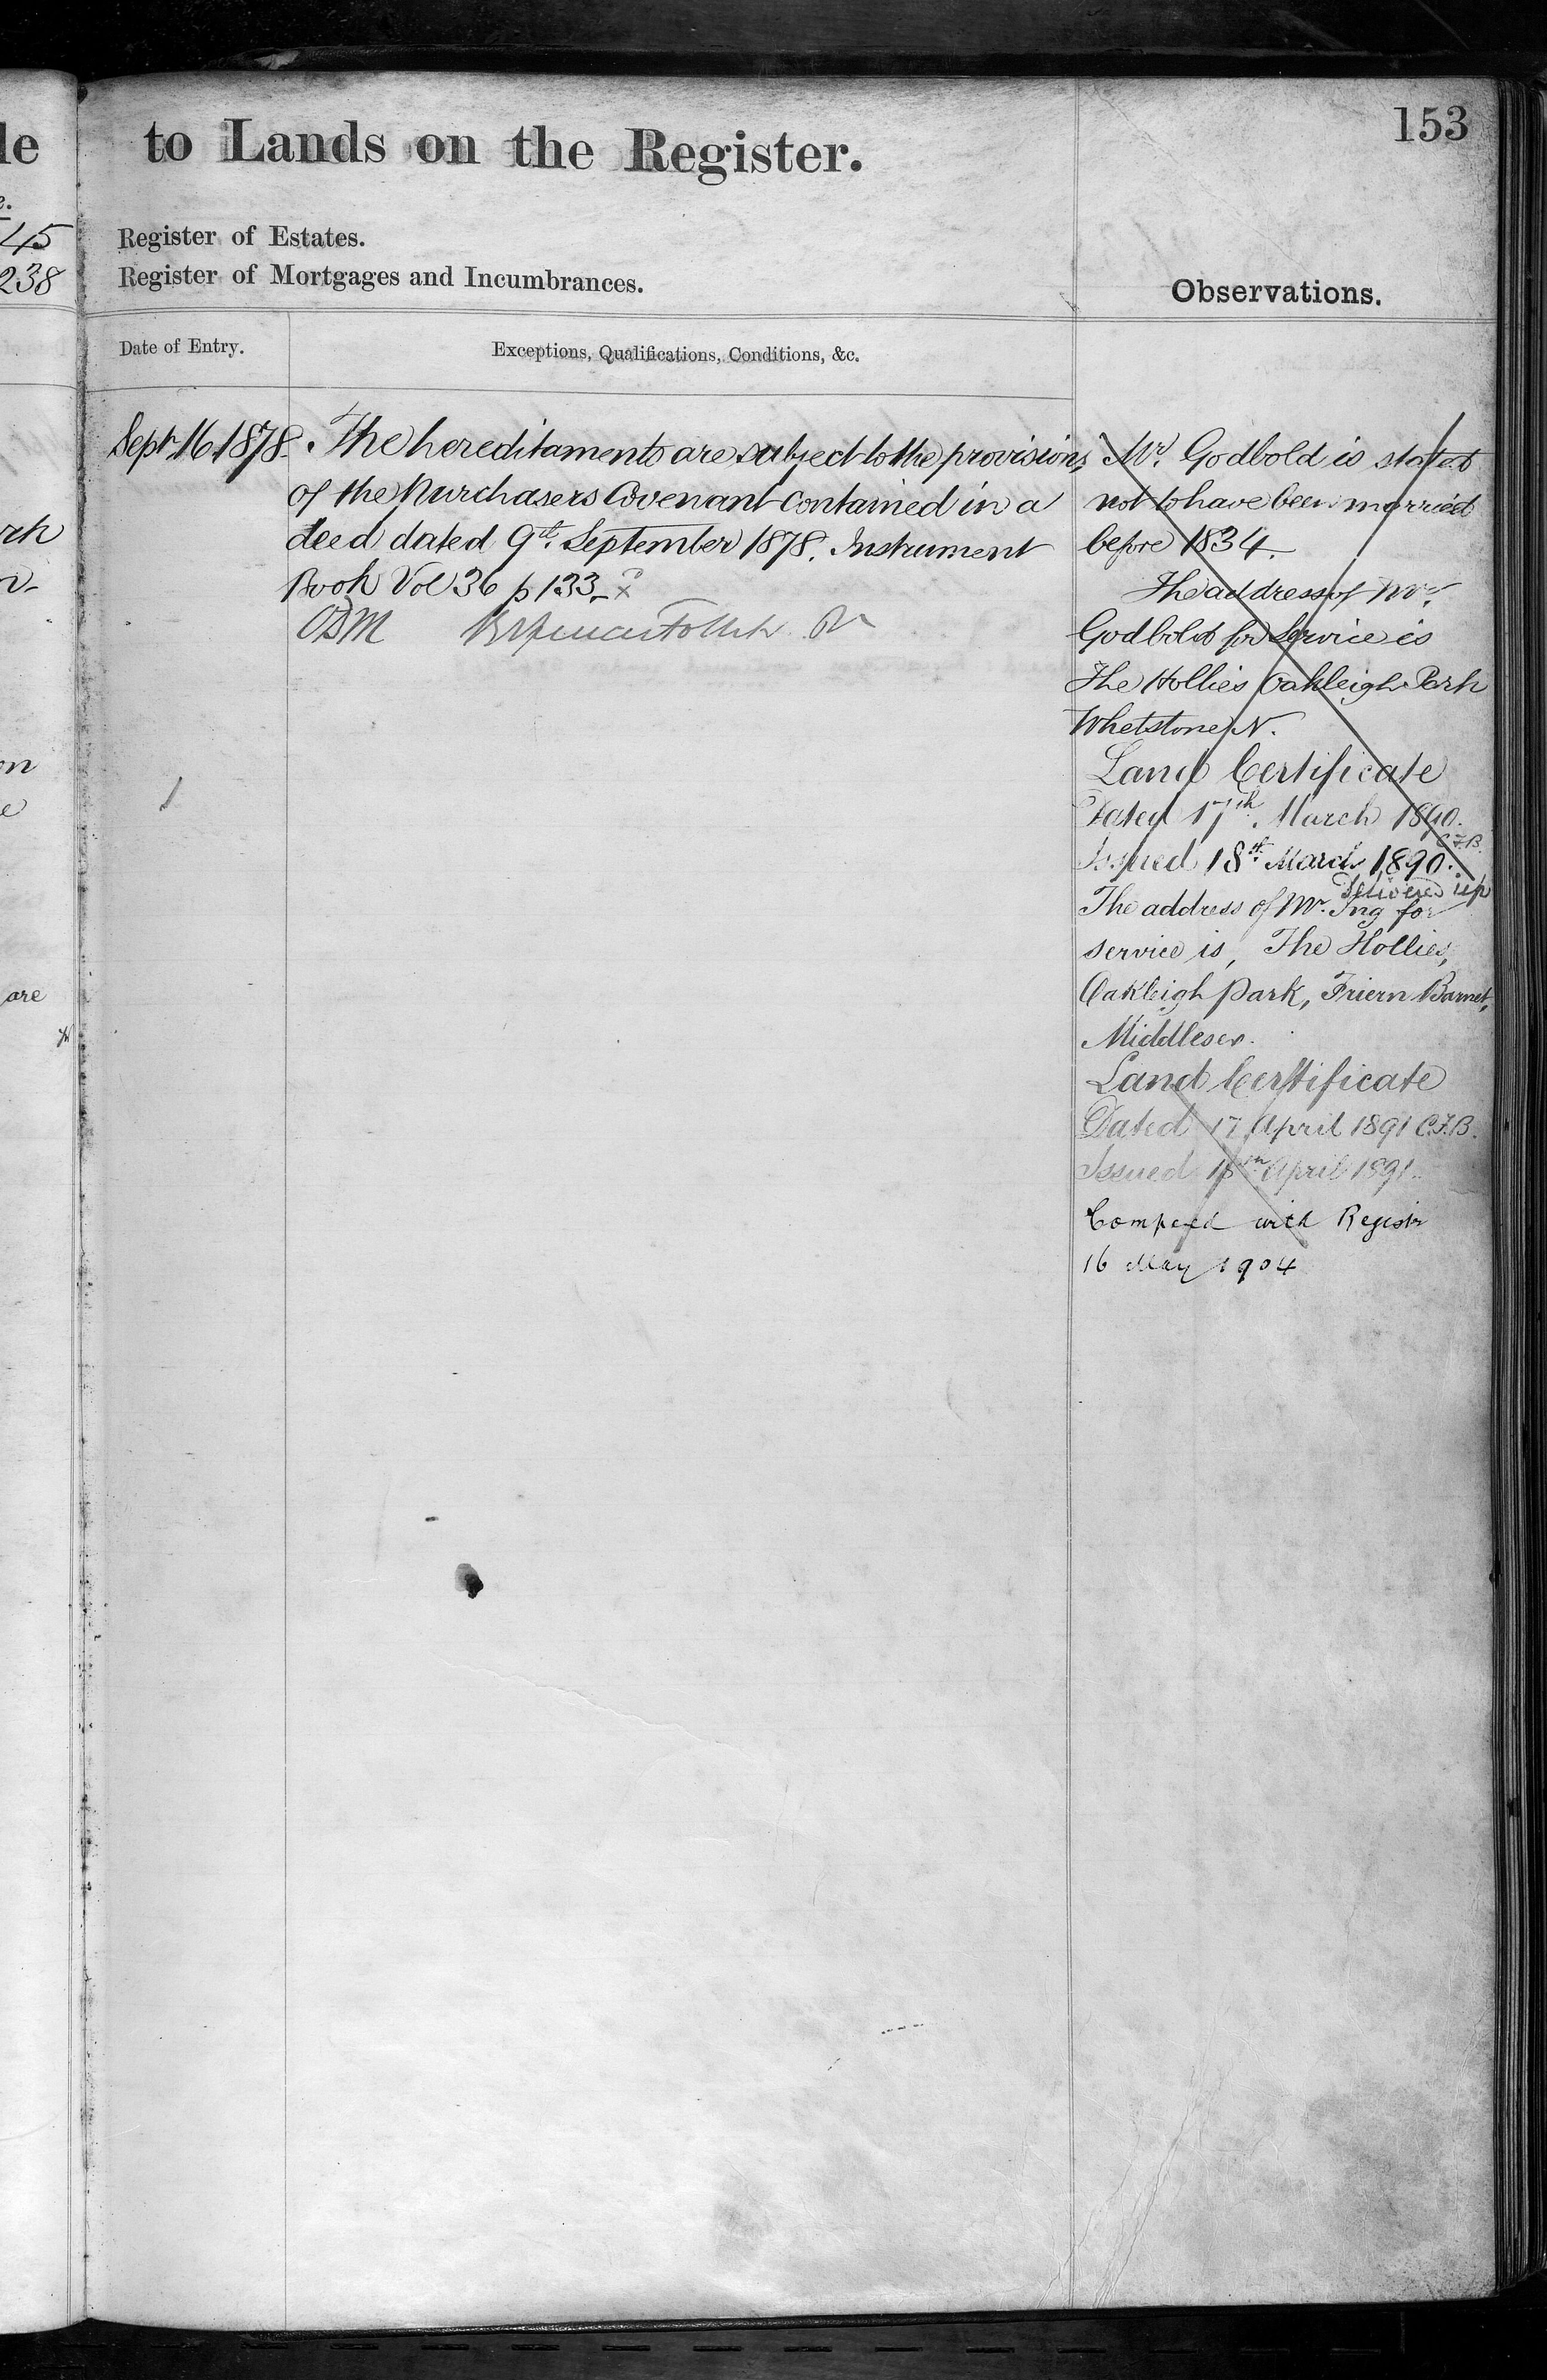 153
to Lands on the Register.
Register of Estates.
Register of Mortgages and Incumbrances.
Observations.
Date of Entry.
Exceptions, Qualifications, Conditions, &c.
Septr 16 1878. The hereditaments are subject to the provisions
of the Purchasers Covenant contained in a
deed dated 9th September 1878. Instrument
Book Vol 36 p 133
Mr. Godbold is stated
not to have been married
before 1834.
The address of Mr.
Godbold for Service is
The Hollies Oakleigh Park
Whetstone N.
Land Certificate
Dated 17th March 1890.
C.F.B.
Issued 18th March 1890.
Delivered up
The address of Mr. Ing for
service is, The Hollies,
Oakleigh Park, Friern Barnet,
Middlesex.
Land Certificate
Dated 17 April 1891 C.F.B.
Issued 18th April 1891.
Compared with Register
16 May 1904
le
45
238
rk
en
e
are